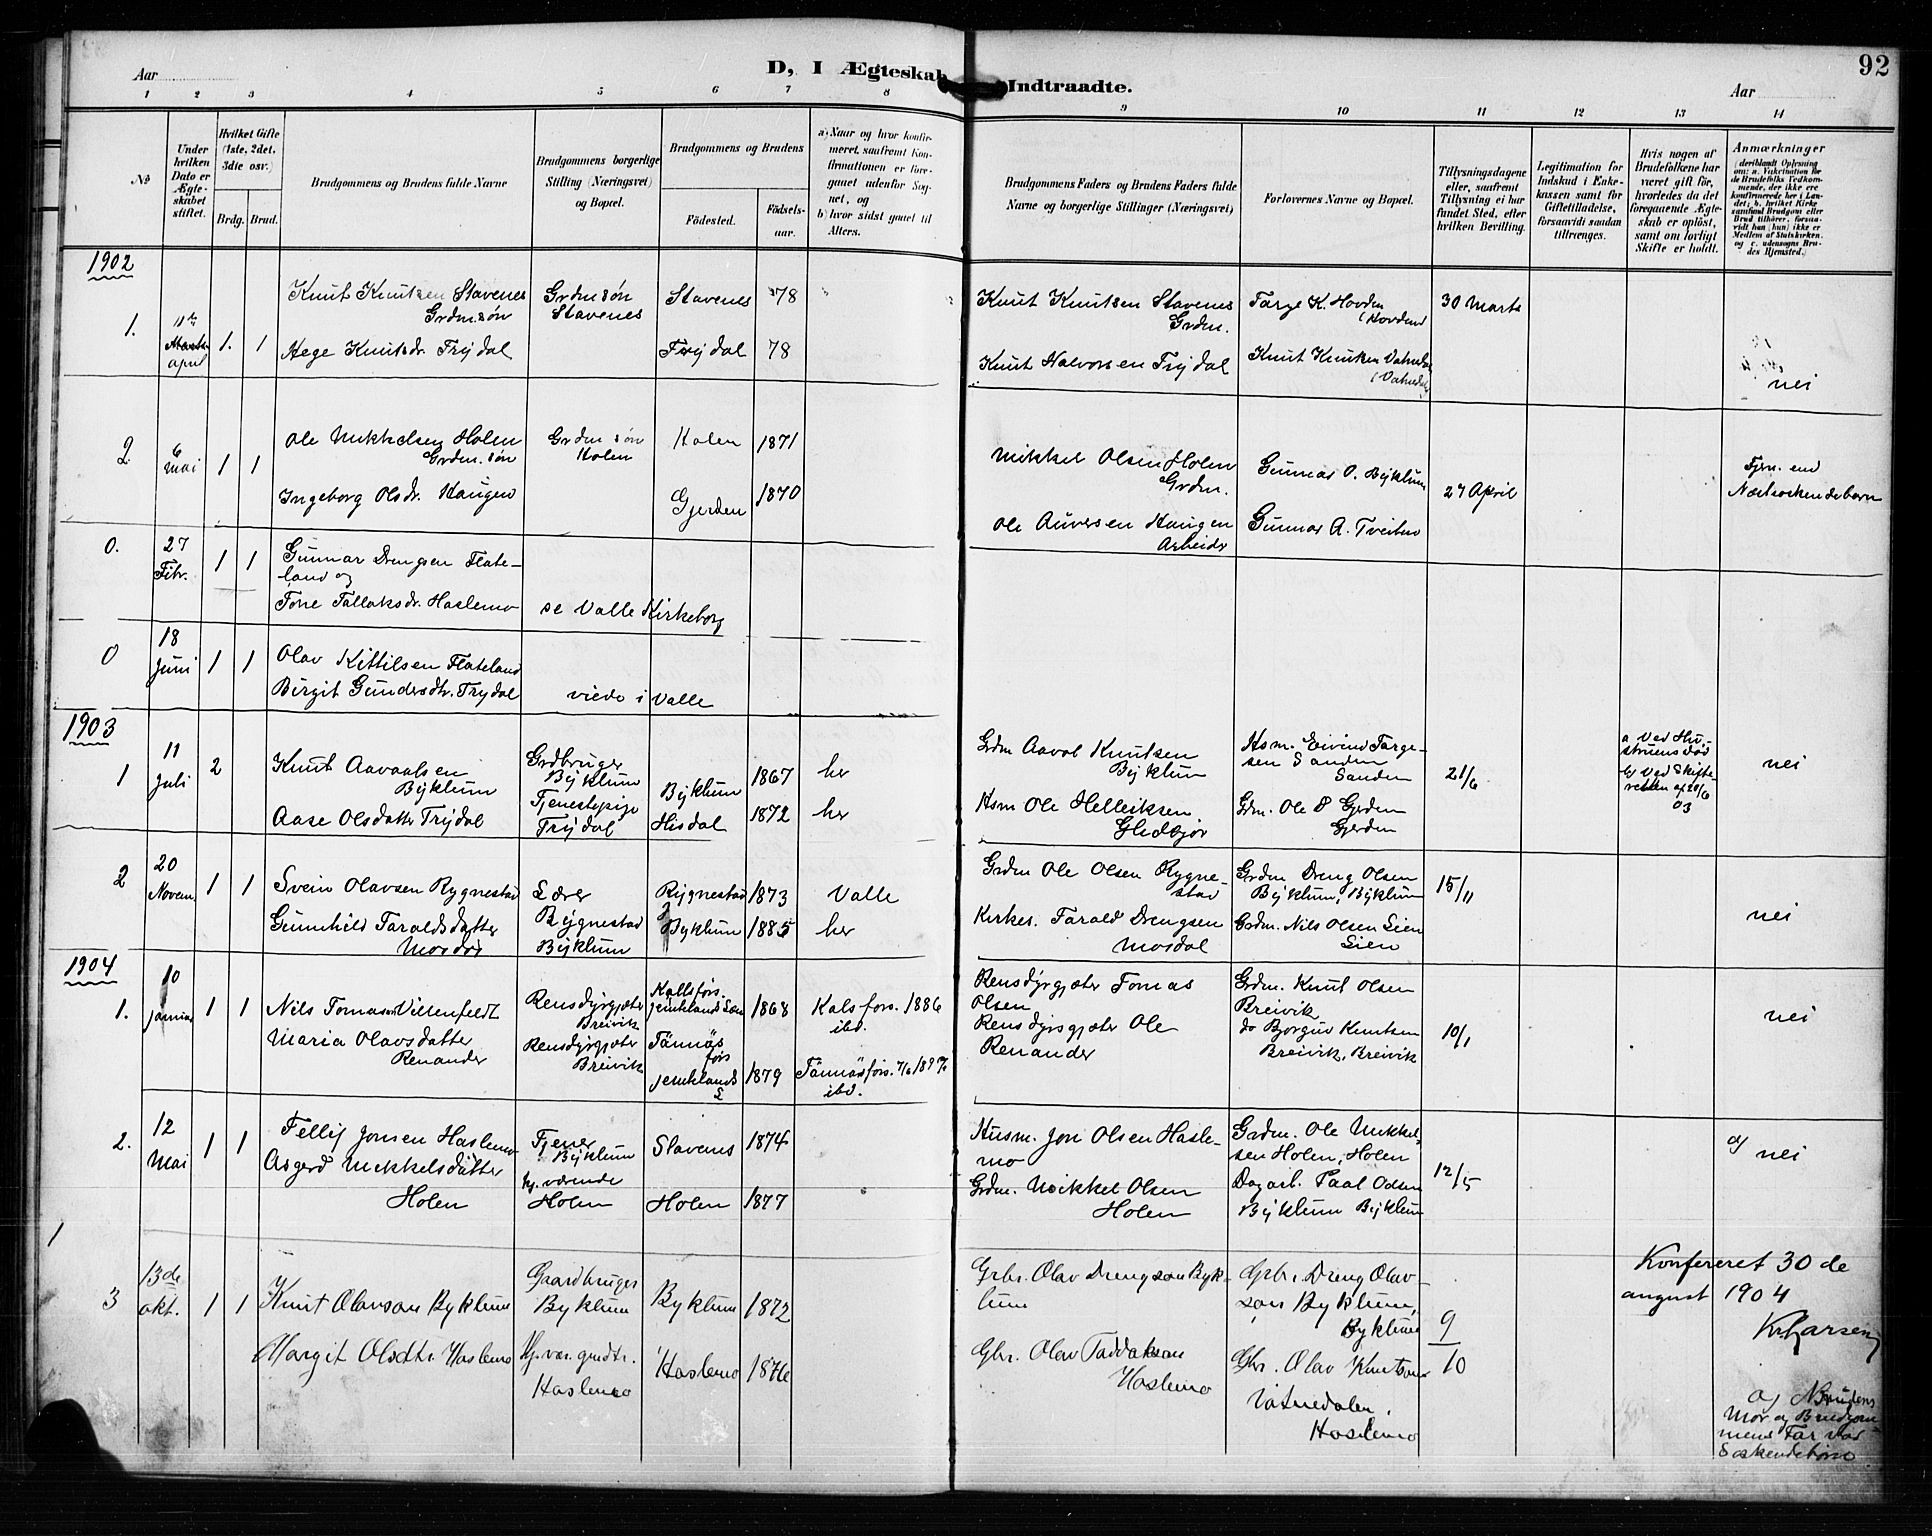 92
Aar
D, I Ægteskab Indtraadte.
Aar
1 2 3 4 5 6 7 8 9 10 11 12 13 14
No
Under hvilken Dato er Ægteskabet stiftet.
Hvilket Gifte (1ste, 2det, 3die osv.)
Brdg. Brud.
Brudgommens og Brudens fulde Navne
Brudgommens borgerlige Stilling (Næringsvei) og Bopæl.
Brudgommens og Brudens
Fødested.
Fødselsaar.
a) Naar og hvor konfirmeret, saafremt Konfirmationen er foregaaet udenfor Sognet, og
b) hvor sidst gaaet til Alters.
Brudgommens Faders og Brudens Faders fulde Navne og borgerlige Stillinger (Næringsvei)
Forlovernes Navne og Bopæl.
Tillysningsdagene eller, saafremt Tillysning ei har fundet Sted, efter hvilken Bevilling.
Legitimation for Indskud i Enkekassen samt for Giftetilladelse, forsaavidt saadan tiltrænges.
Hvis nogen af Brudefolkene har været gift før, hvorledes da det foregaaende Ægteskab er opløst, samt om lovligt Skifte er holdt.
Anmærkninger
(deriblandt Oplysning om: a. Vakcination for de Brudefolks Vedkommende, der ikke ere konfirmerede her i Landet; b. hvilket Kirkesamfund Brudgom eller Brud tilhører, forsaavidt han (hun) ikke er Medlem af Statskirken, og c. udensogns Brudes Hjemsted.)
1902
1.
april
1. 1
Knut Knutsen Stavenes
Grdm.søn
Hege Knutsdr. Trydal
Grdm søn
Stavenes
Stavenes 78
Trydal 78
Knut Knutsen Stavenes
Grdm.
Knut Halvorsen Trydal
Targe K. Hovden
(Hovden)
Knut Knutsen Vatnedal
30 Marts
nei
2
6
mai
1 1
Ole Mikkelsen Holen
Grdm. søn
Ingeborg Olsdr. Haugen
Grdm søn
Holen
Holen 1871
Gjerden 1870
Mikkel Olsen Holen
Grdm.
Ole Auversen Haugen
Arbeider
Gunnar O. Byklum
Gunnar A. Tveiten
27 April
Fjern. end
Næstsøskendebarn
0.
27
Febr.
1 1
Gunnar Drengsen Flate-
land og
Tone Tallaksdr. Haslemo
se Valle Kirkebog
0
18
Juni
1 1
Olav Kittilsen Flateland
Birgit Gundersdtr. Trydal
viede i Valle
1903
1
11
Juli
2
Knut Aavaalsen
Byklum
Aase Olsdatter Trydal
Grdbruger
Byklum
Tjenestepige
Trydal
Byklum 1867
Hisdal 1872
her
her
Grdm Aavol Knutsen
Byklum
Hsm Ole Helleiksen
Hsm. Eivind Targe-
sen Sanden
Sanden
Grdm. Ole S Gjerden
Gjerden
21/6
a Ved Hu-
struens død
b Ved Skifte-
retten af 20/6
03
nei
2
20
Novem.
1 1
Svein Olavsen Rygnestad
Gunhild Taraldsdatter
Mosdøl
Lærer
Rygnestad
Byklum
Rygnestad 1873
Byklum 1885
Valle
her
Grdm Ole Olsen Rygne-
stad
Kirkes. Tarald Drengsen
Mosdøl
Grdm Dreng Olsen
Byklum, Byklum
Grdm. Nils Olsen Lien
Lien
15/11
nei
1904
1.
10
januar
1 1
Nils Tomasson Villenfeldt
Maria Olavsdatter
Renander
Rensdyrgjæter
Breivik
Rensdyrgjæter
Breivik
Kallsfors.
Jemtlands Læn 1868
Tännäs
fors
Jemtlands
L 1879
Kalsfors. 1886
ibd.
Tännäsfors. 7/6 1897
ibd.
Rensdyrgjæter Tomas
Olsen
Rensdyrsgjæter Ole
Renander
Grdm. Knut Olsen
Breivik
do Bjorguv Knutsen
Breivik, Breivik
10/1
nei
2.
12
Mai
1 1
Felly Jonsen Haslemo
Asgerd Mikkelsdatter
Holen
Tjener
Byklum
hj. værende
Holen
Stavenes 1874
Holen 1877
Husm. Jon Olsen Hasle-
mo
Grdm. Mikkel Olsen
Holen
Grdm. Ole Mikkel-
sen Holen, Holen
Dagarb. Paal Odsen
Byklum Byklum
12/5
a) nei
Konfereret 30 de
august 1904
3
13de
okt.
1 1
Knut Olavson Byklum
Margit Olsdtr. Haslemo
Gaardbruger
Byklum
Hj. vær. grdtr.
Haslemo
Byklum 1872
Haslemo 1876
Grbr. Olav Drengson Byk-
lum
Gbr. Olav Taddakson
Haslemo
Grbr. Dreng Olav-
son Byklum,
Byklum
Gbr. Olav Knutson
Vatnedalen,
Haslemo
9/10
a) Brudens
Mor og Brudgom-
mens Far var
Søskendebørn